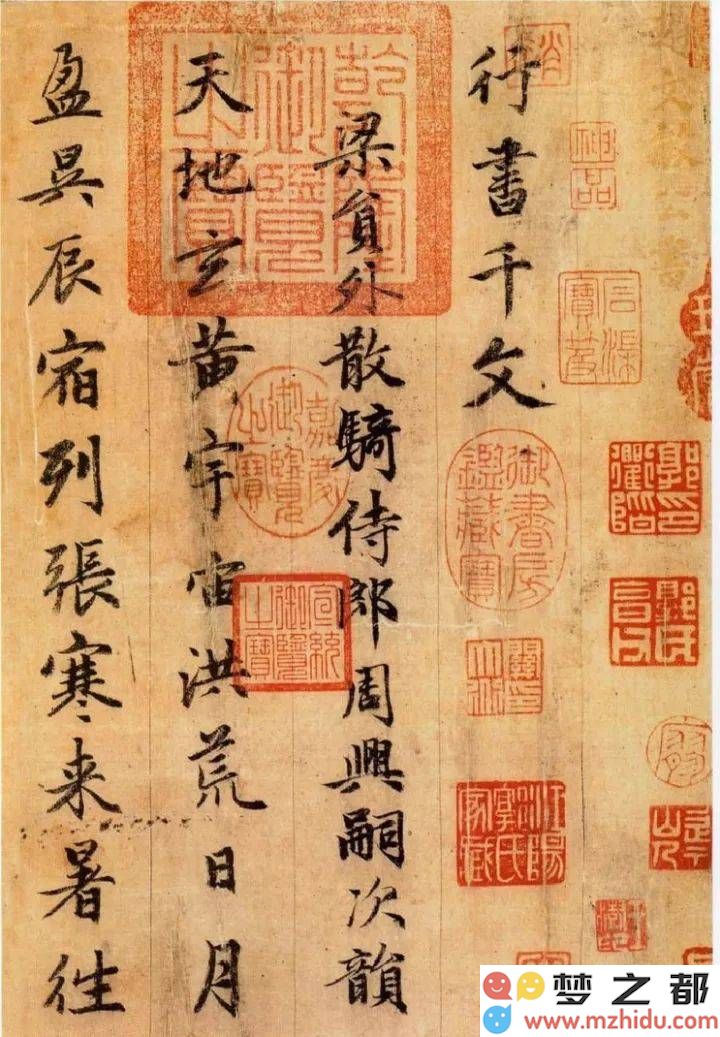 行書千文
梁貟外散騎侍郎周興嗣次韻
天地玄黄宇宙洪荒日月
盈昃辰宿列張寒来暑往
神品
石渠寶笈
御書房鑑藏寶
乾隆御覽之寶
嘉慶御覽之寶
宣統御覽之寶
梦之都
www.mzhidu.com